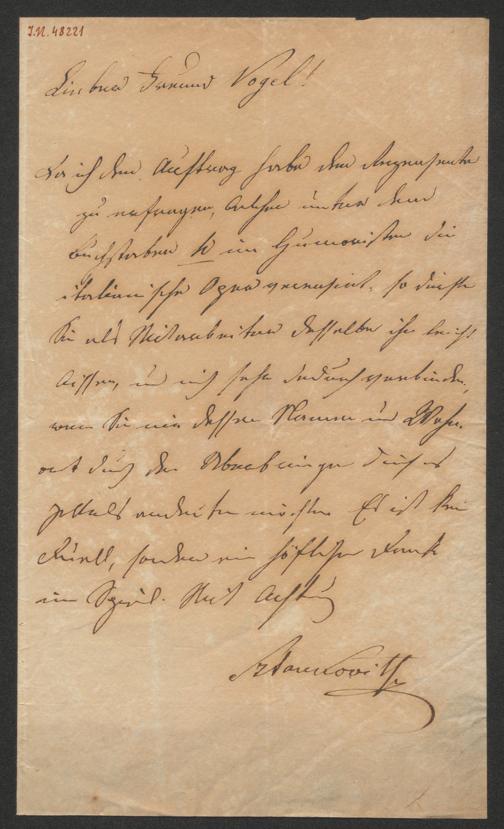 I.N. 48221
Lieber Freund Vogel!
Da ich den Auftrag habe den Rezensenten
zu erfragen, welcher unter dem
Buchstaben K im Humoristen die
italienische Oper recensirt, so dürften
Sie als Mitarbeiter desselben ihn leicht
wissen, u mich sehr dadurch verbinden,
wenn Sie mir dessen Namen u Wohn-
ort durch den Überbringer dieses
andeuten möchten Es ist kein
Duell, sondern ein höflicher Dank
im Spiel. Mit Achtung